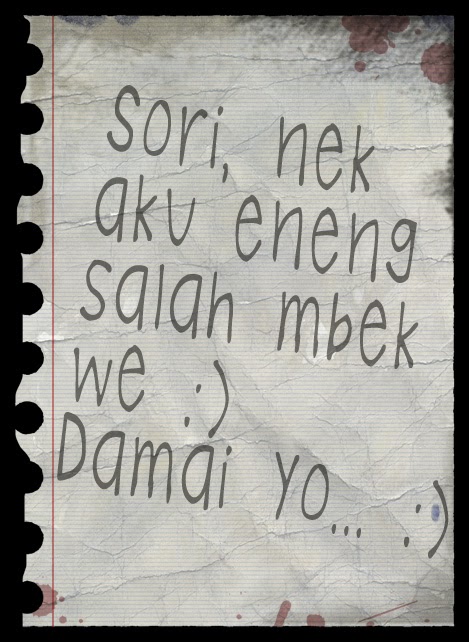 Sori, nek
aku eneng
salah mbek
we :)
Damai yo... :)